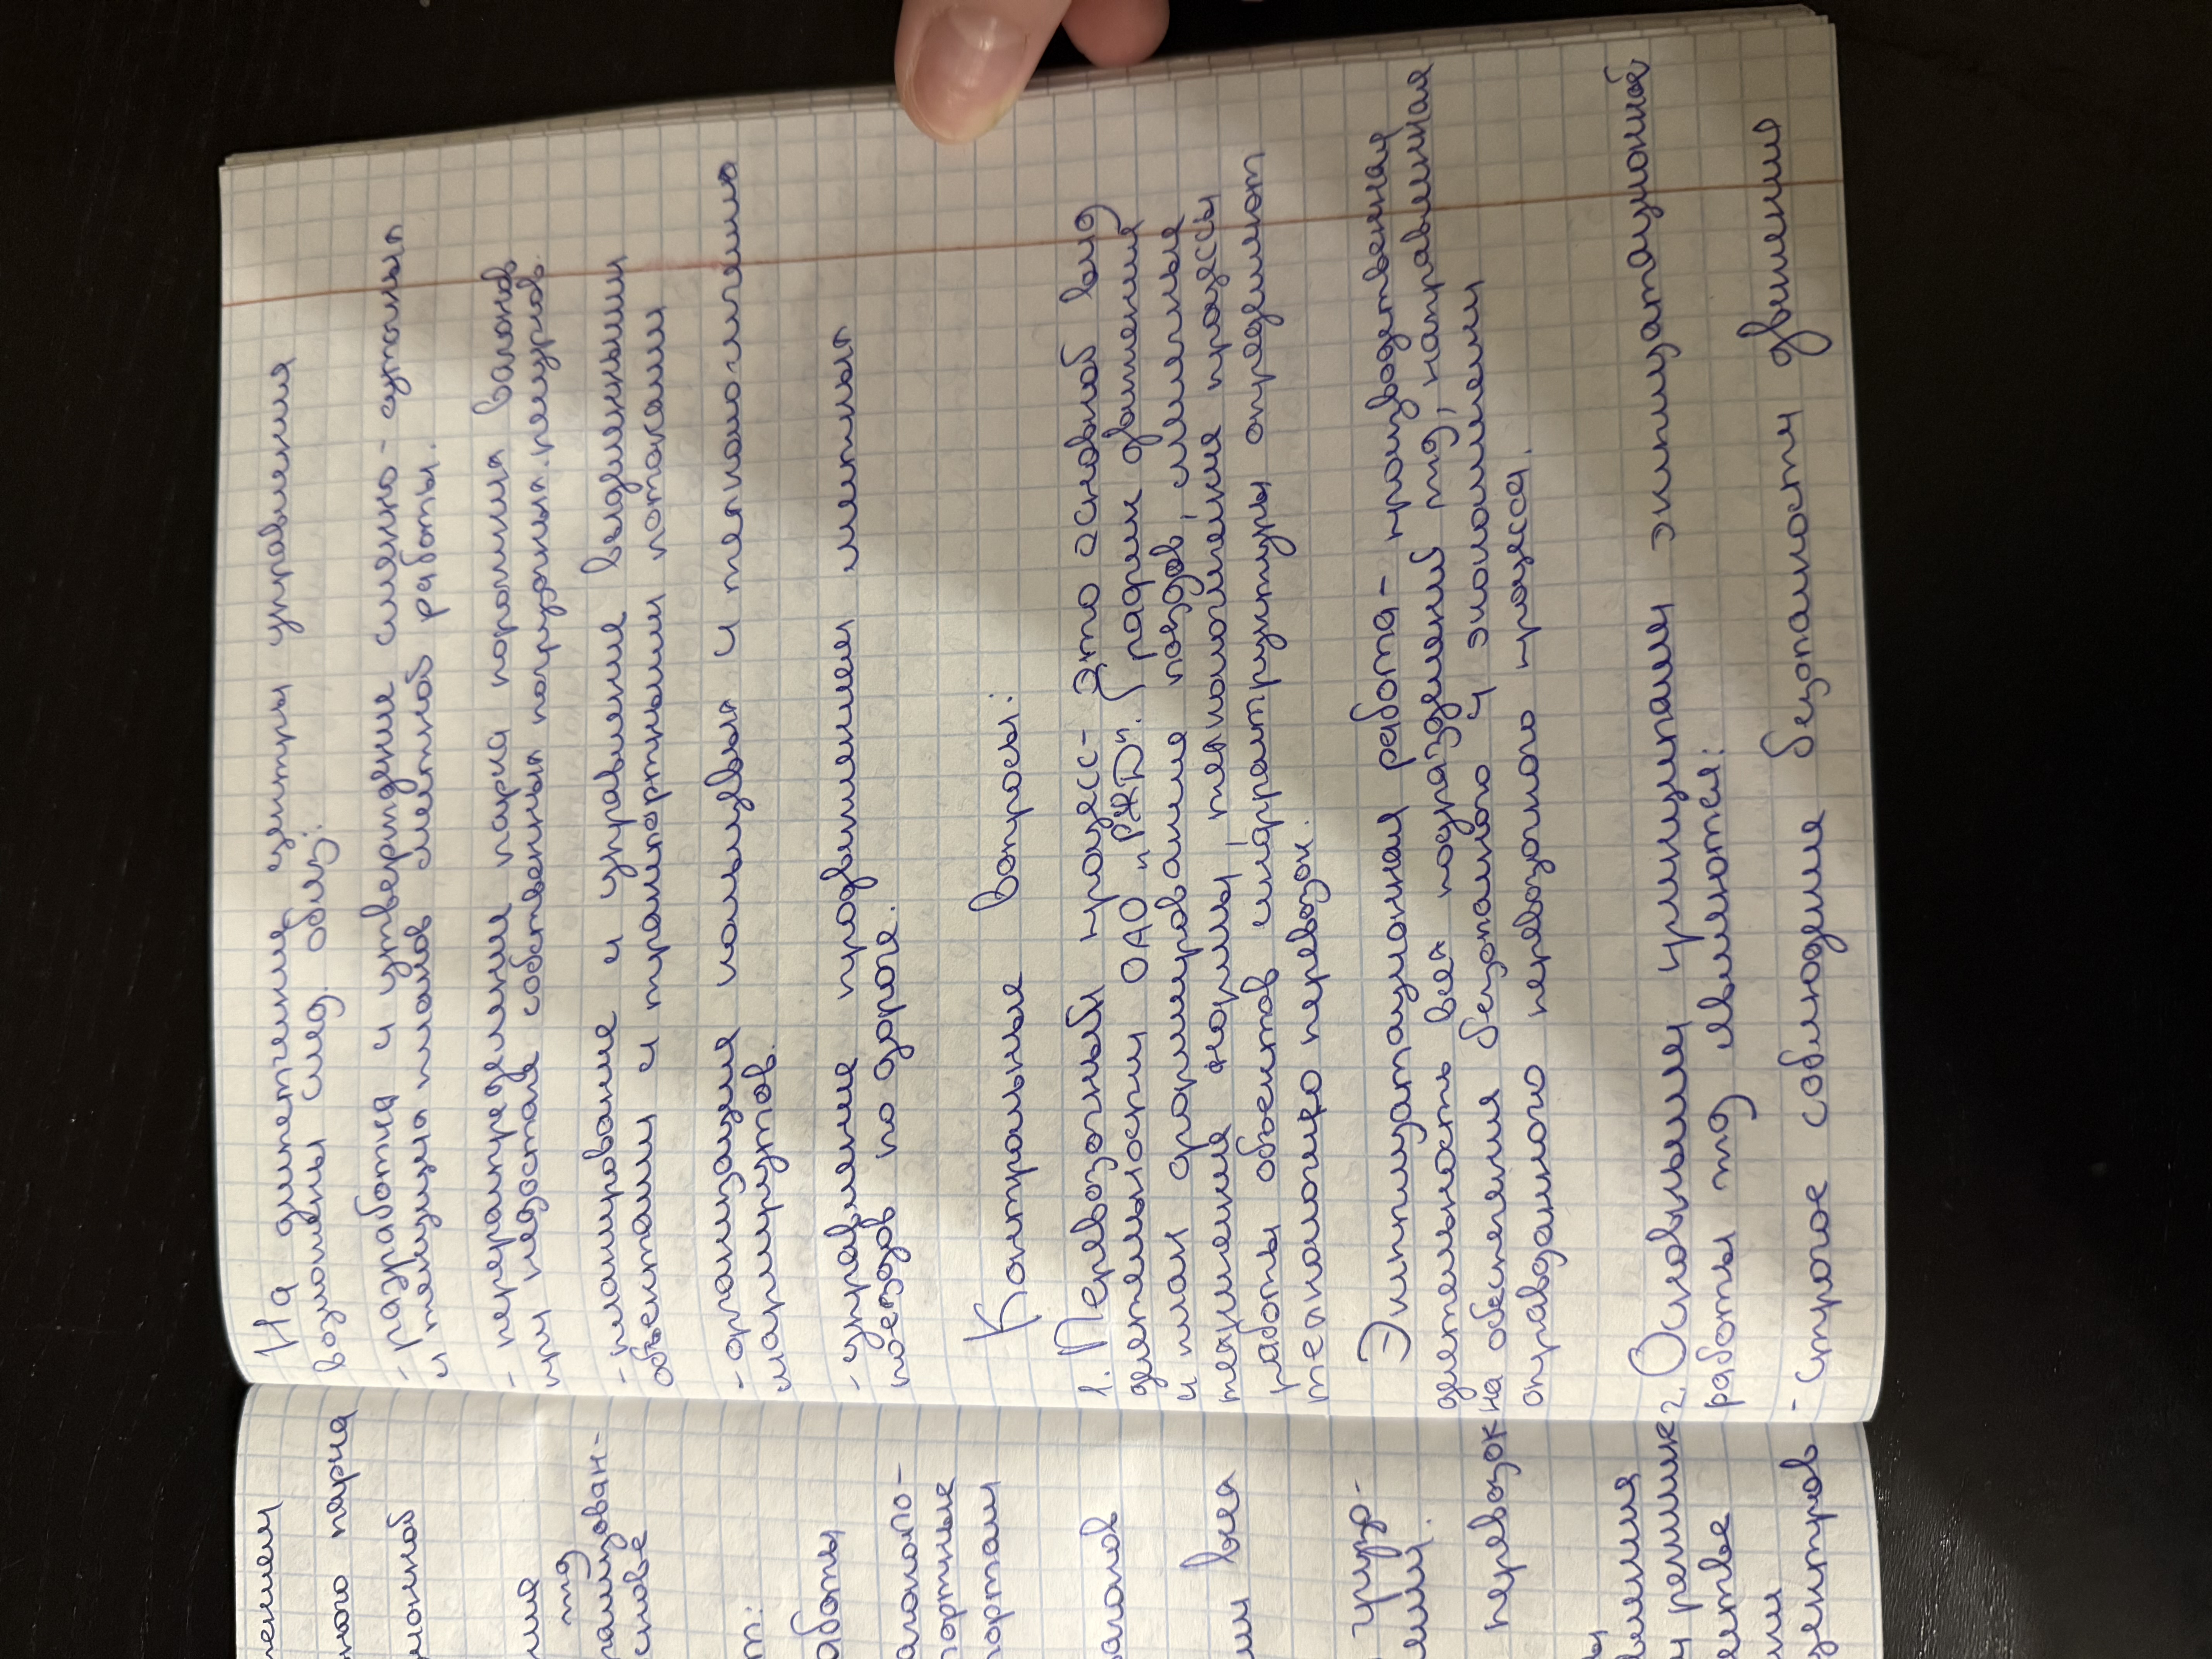 На диспетчерские центры управления
возложены след. обяз:
- разработка и утверждение сменно-суточных
и текущих планов сменной работы.
- перераспределение парка порожних вагонов
при недостаче собственных погрузочных ресурсов.
- планирование и управление выделенными
объектами и транспортными потоками
- организация кольцевых и технологических
маршрутов.
- управление продвижением
поездов по дороге.
Контрольные вопросы:
1. Перевозочный процесс- это основной вид
деятельности ОАО "РЖД". График движения
и план формирования поездов, сменные
технические нормы, технологические процессы
работы объектов инфраструктуры определяют
технологию перевозок.
Эксплуатационная работа- производственная
деятельность всех подразделений жд, направленная
на обеспечения безопасного и экономически
оправданного перевозного процесса.
2. Основными принципами эксплуатационной
работы жд являются:
- строгое соблюдение безопасности движения
ного парка
жд
т:
аботы
портные
портам
вагонов
ми всех
перевозок
центров